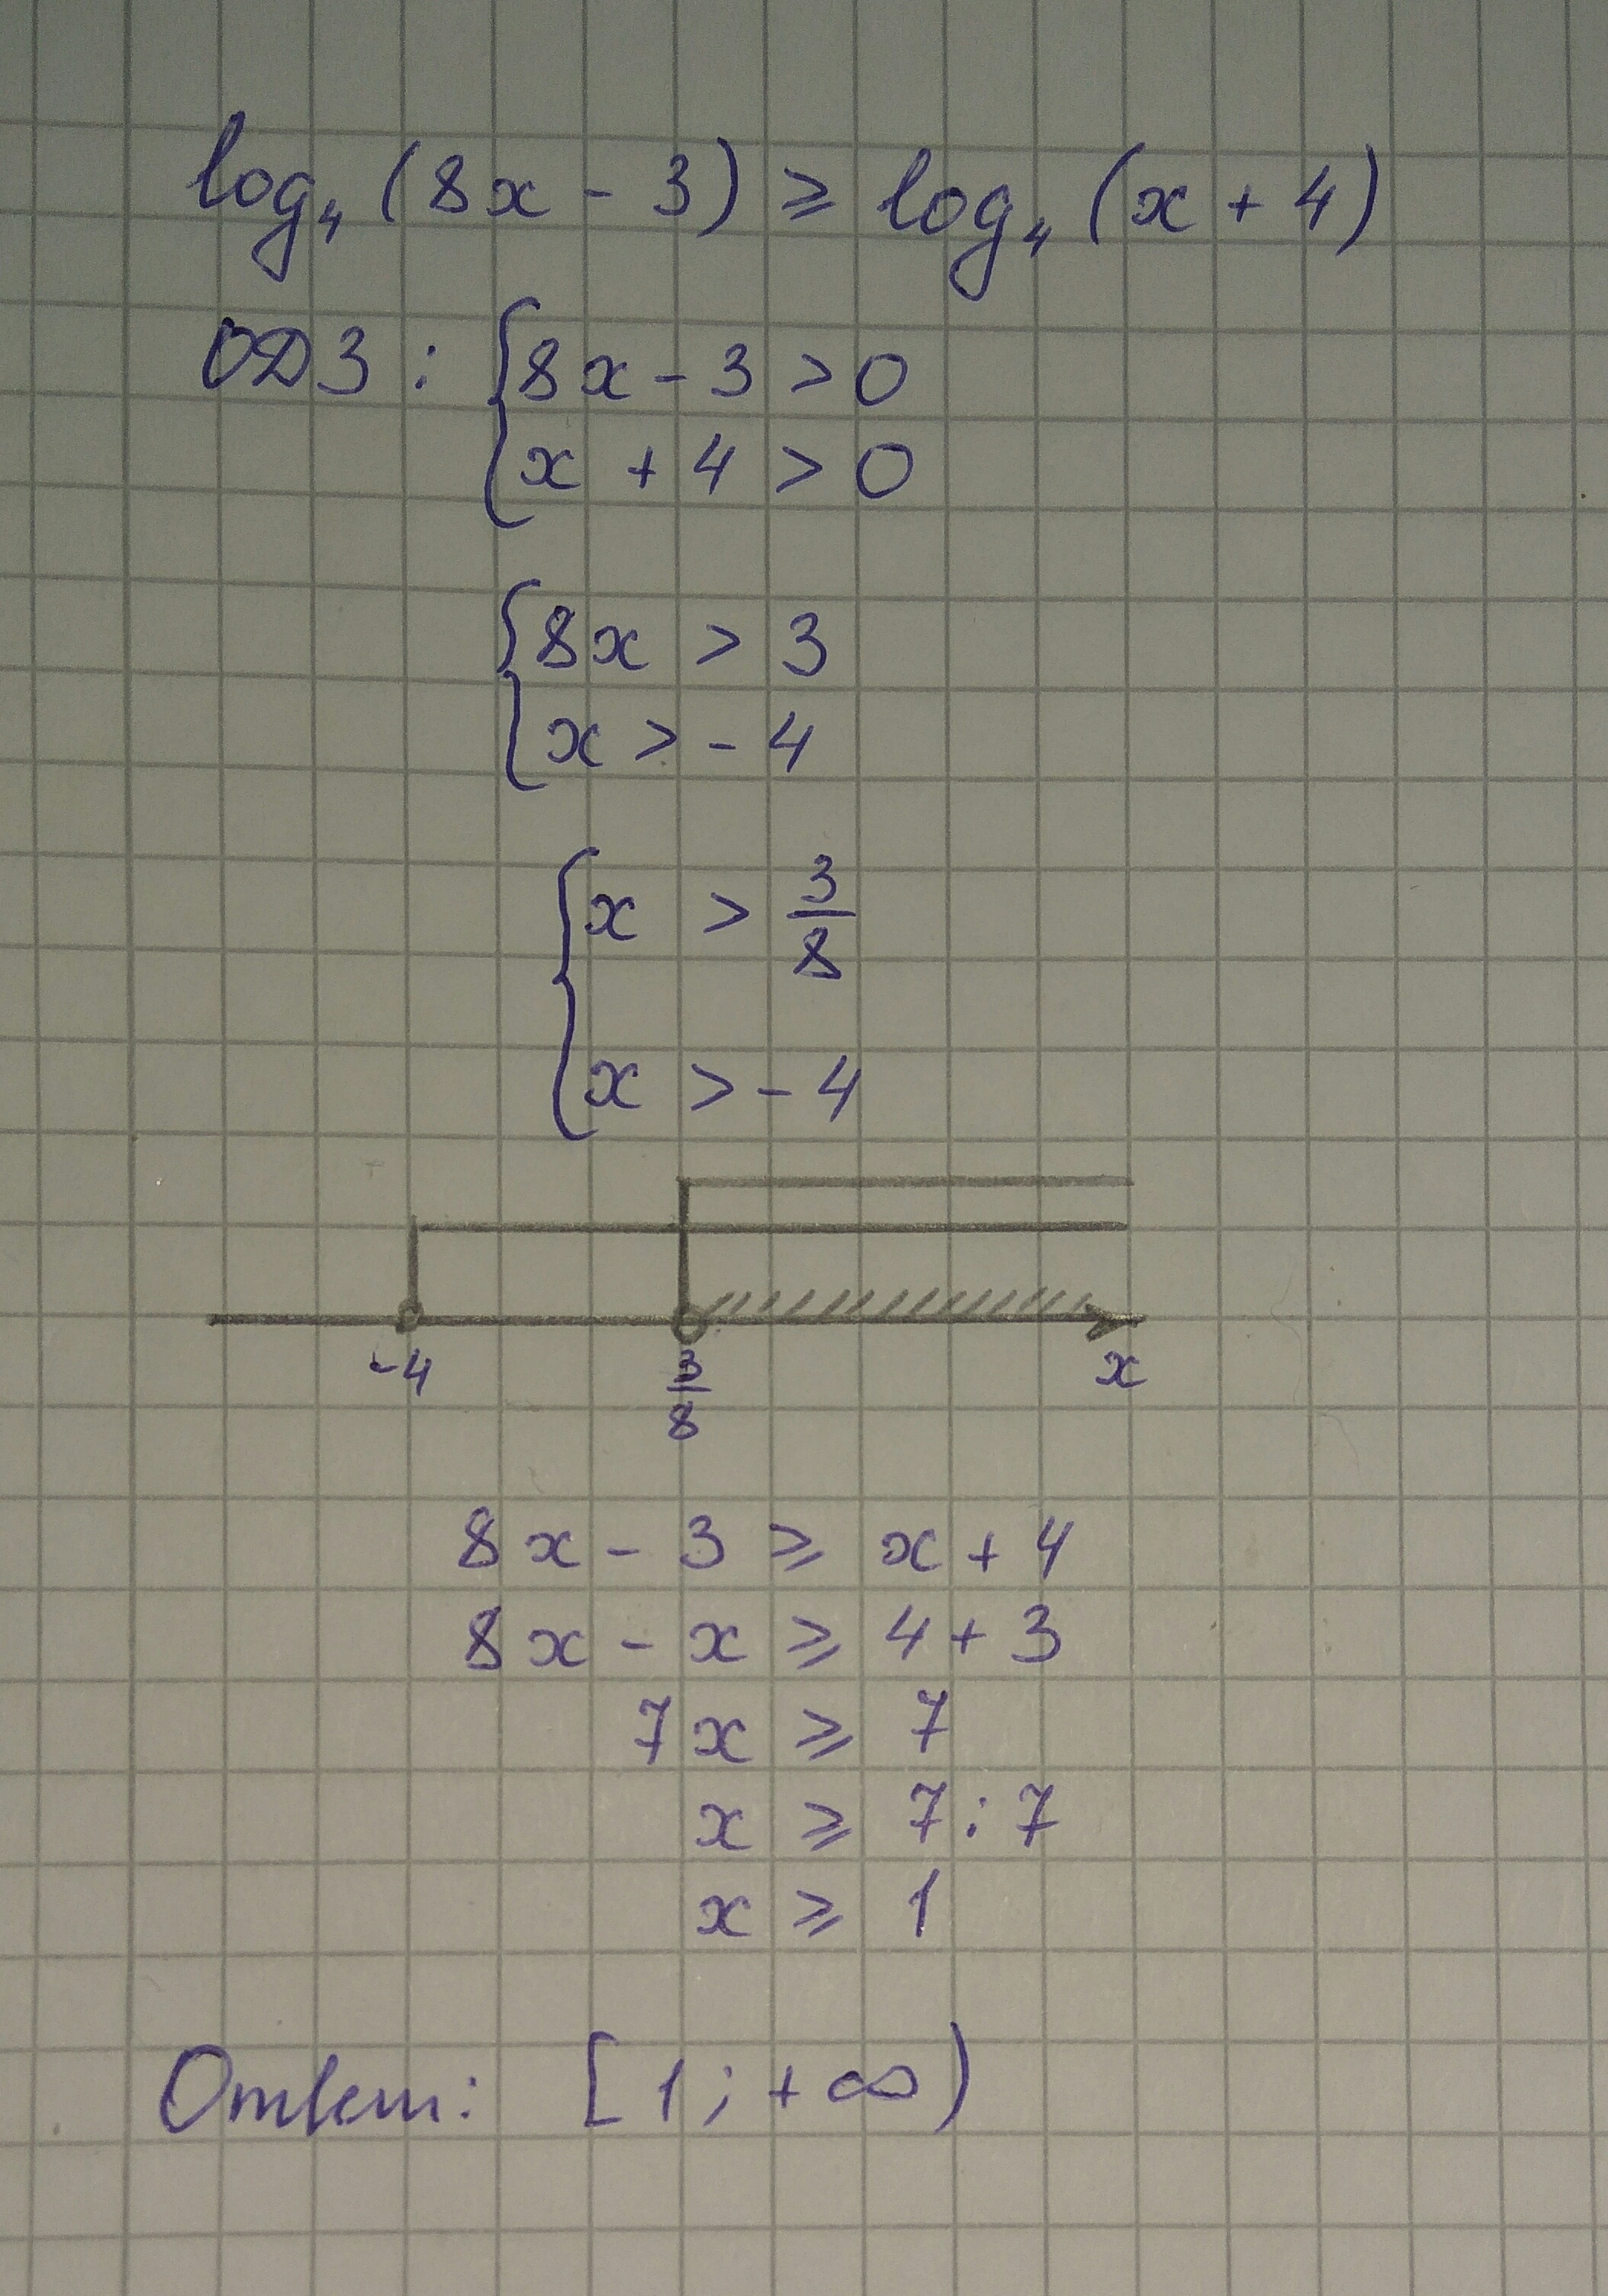 log₄ (8x - 3) ⩾ log₄ (x + 4)
ОДЗ : { 8x - 3 > 0
x + 4 > 0
{ 8x > 3
x > - 4
{ x > 3/8
x > - 4
-4 3/8 x
8x - 3 ⩾ x + 4
8x - x ⩾ 4 + 3
7x ⩾ 7
x ⩾ 7 : 7
x ⩾ 1
Ответ: [1; +∞)